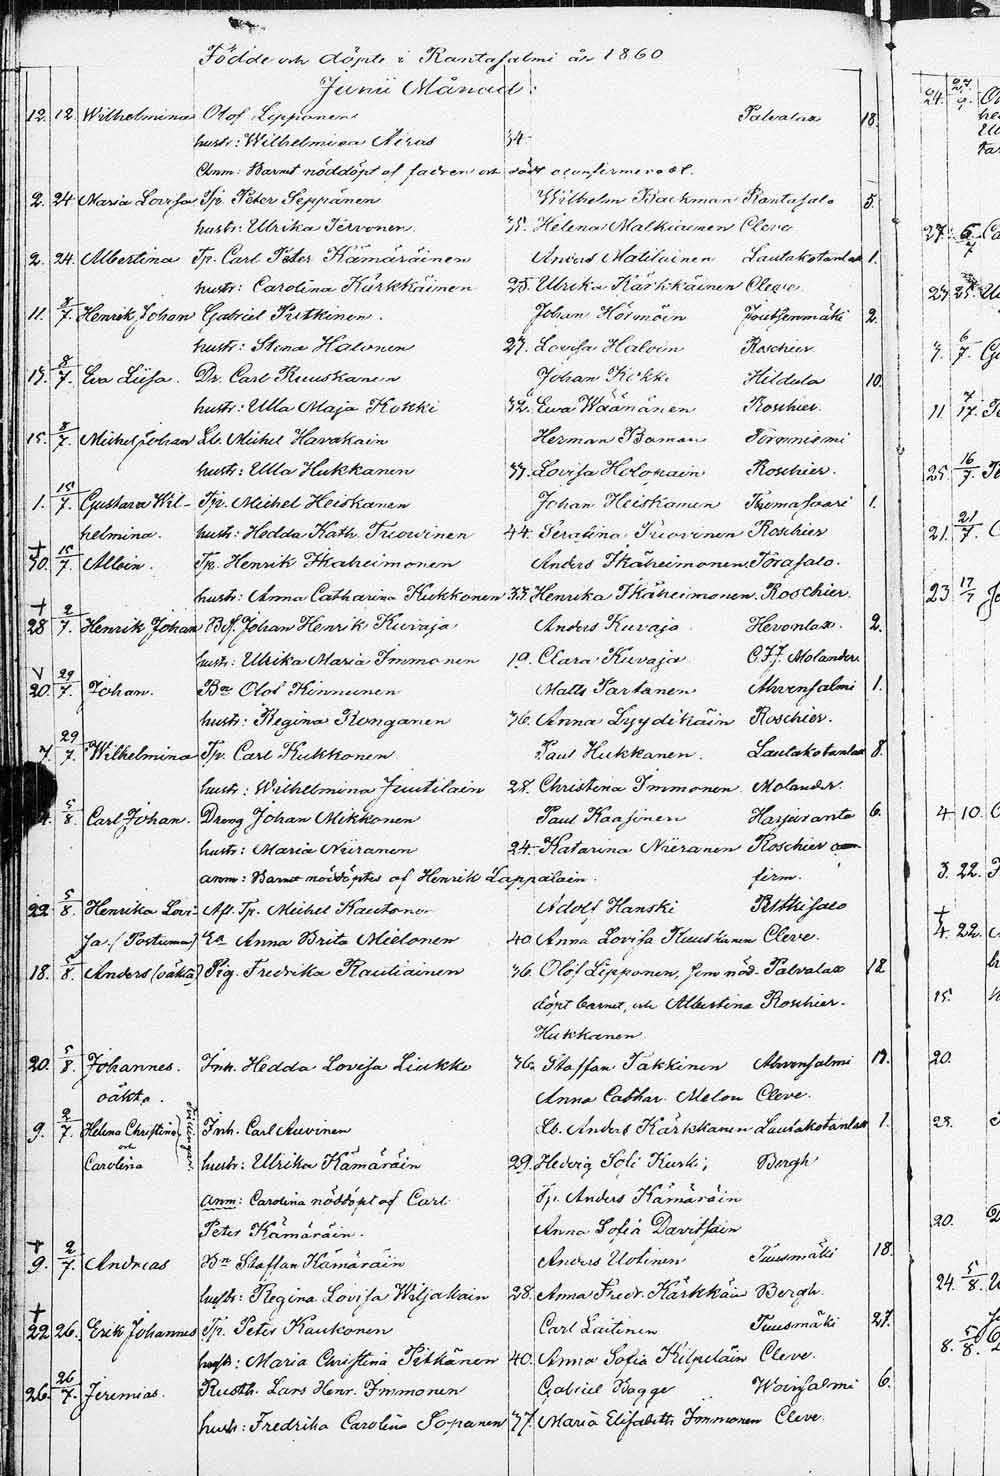 Födde och döpte i Rantasalmi år 1860
Junii Månad:
12. 12. Wilhelmina Olof Lipponen Palvalax 18.
hustr: Wilhelmina Airas 34
Anm: Barnet nöddöpt af fadren och dödt oconfirmeradt.
2. 24 Maria Lovisa Tp. Peter Seppänen Wilhelm Backman Rantasalo 5.
hustr: Ulrika Tervonen 35. Helena Malkiainen Cleve
2. 24. Albertina Tp. Carl Peter Kämäräinen Anders Matilainen Lautakotanlax 1.
hustr: Carolina Kärkkäinen 25. Ulrika Kärkkäinen Cleve.
11. 8/7. Henrik Johan Gabriel Putkinen. Johan Hörmöin Joutsenmäki 2.
hustr: Stena Halonen 27. Lovisa Haloin Roschier.
8/7. Eva Liisa. Dr. Carl Ruuskanen Johan Kokki Hildula 10.
hustr: Ulla Maja Kokki 32. Eva Wäänänen Roschier.
15. 8/7. Michel Johan Lb. Michel Havakain Herman Boman Tornniemi
hustr: Ulla Hukkanen Lovisa Holopain Roschier.
1. 15/7. Gustava Wil- Tp. Michel Heiskanen Johan Heiskanen Tuomasaari 1.
helmina. hustr: Hedda Kath. Tuovinen 44. Serafina Tuovinen Roschier
+
30. 15/7. Albin. Tp. Henrik Ikäheimonen Anders Ikäheimonen Torasalo.
hustr: Anna Catharina Kukkonen 33. Henrika Ikäheimonen. Roschier.
+
28 2/7. Henrik Johan Bs. Johan Henrik Kuvaja Anders Kuvaja Hevonlax. 2.
hustr: Ulrika Maria Immonen 19. Clara Kuvaja C.F.J. Molander.
v
20. 29/7. Johan. Bn Olof Kinnunen Matts Partanen Ahvensalmi 1.
hustr: Regina Ronganen 36. Anna Lyydikäin Roschier.
7. 29/7. Wilhelmina Tp. Carl Kukkonen Paul Hukkanen. Lautakotanlax 8.
hustr: Wilhelmina Jeutilain 28. Christina Immonen Molander.
5/8. Carl Johan. Dreng Johan Mikkonen Paul Kaasinen Harjuranta 6.
hustr: Maria Niiranen 24. Katarina Niiranen Roschier con
anm: Barnet nöddöptes af Henrik Lappalain. firm.
22. 5/8. Henrika Lovi- Afl. Tp. Michel Kautonen Adolf Hanski Pitkisalo
sa. (Postuma) Ea Anna Brita Mielonen 40. Anna Lovisa Ruuskanen Cleve.
18. 5/8. Anders (oäkta) Pig. Fredrika Rautiainen 36. Olof Lipponen, som nöd- Palvalax 18
döpt barnet, och Albertina Roschier.
Hukkanen
20. 5/8. Johannes. Inh. Hedda Lovisa Liukko 36. Staffan Pakkinen Ahvensalmi
oäkta. Anna Cathar. Melon Cleve.
9. 2/7. Helena Christina Inh. Carl Auvinen Lb. Anders Kärkkanen Lautakotanlax 1.
och
Carolina hustr: Ulrika Kämäräin 29. Hedvig Sofi Kurki, Bergh
Tvillingar
anm: Carolina nöddöpt af Carl Tp. Anders Kämäräin
Peter Kämäräin. Anna Sofia Davitsain
+
9. 2/7. Andreas Bn Staffan Kämäräin Anders Uotinen Tuusmäki 18.
hustr: Regina Lovisa Wiljakain 28. Anna Fredr. Kärkkäin Bergh.
+
22 26. Erik Johannes Tp. Peter Kaukonen Carl Laitinen Tuusmäki 27.
hustr: Maria Christina Pitkänen 40. Anna Sofia Kilpeläin Cleve.
26. 26/7. Jeremias. Rusth. Lars Henr. Immonen Gabriel Bagge Woinsalmi 6.
hustr: Fredrika Carolina Sopanen 37. Maria Elisabeth Immonen Cleve.